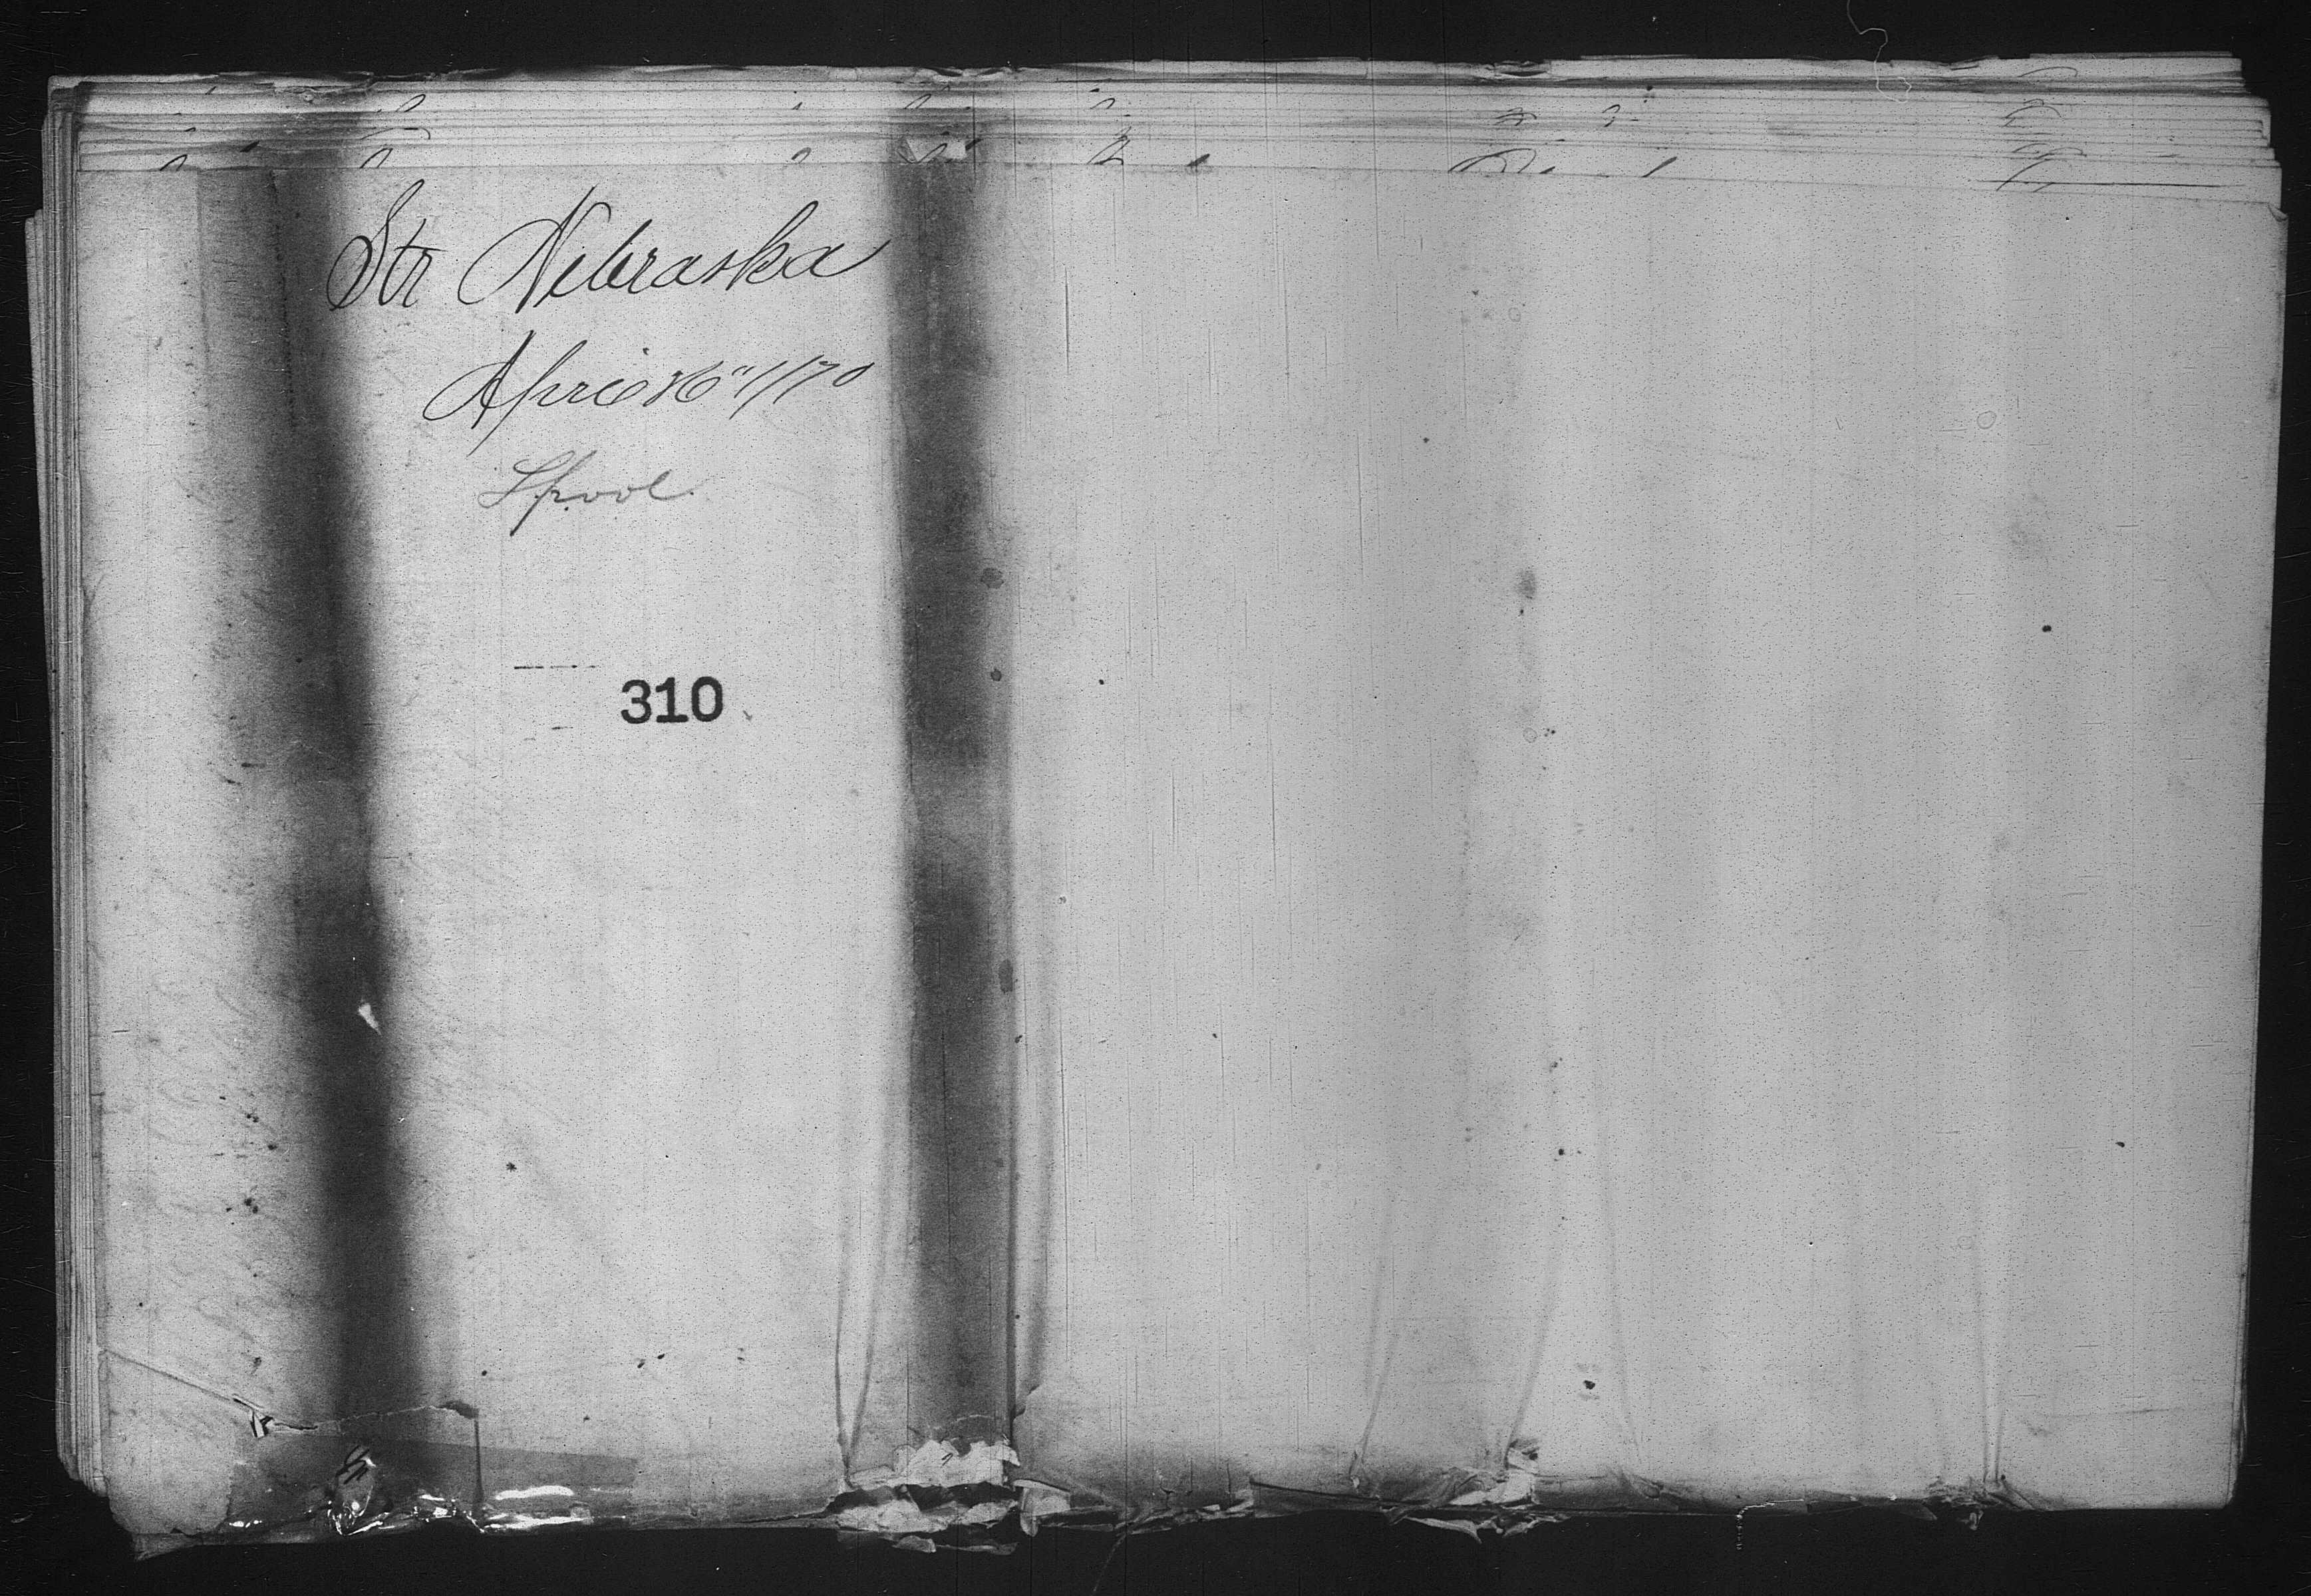 Str Nebraska
April 16" 1870
Lpool
310